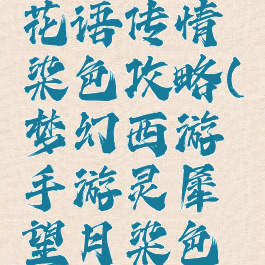 花语传情
染色攻略(
梦幻西游
手游灵犀
望月染色